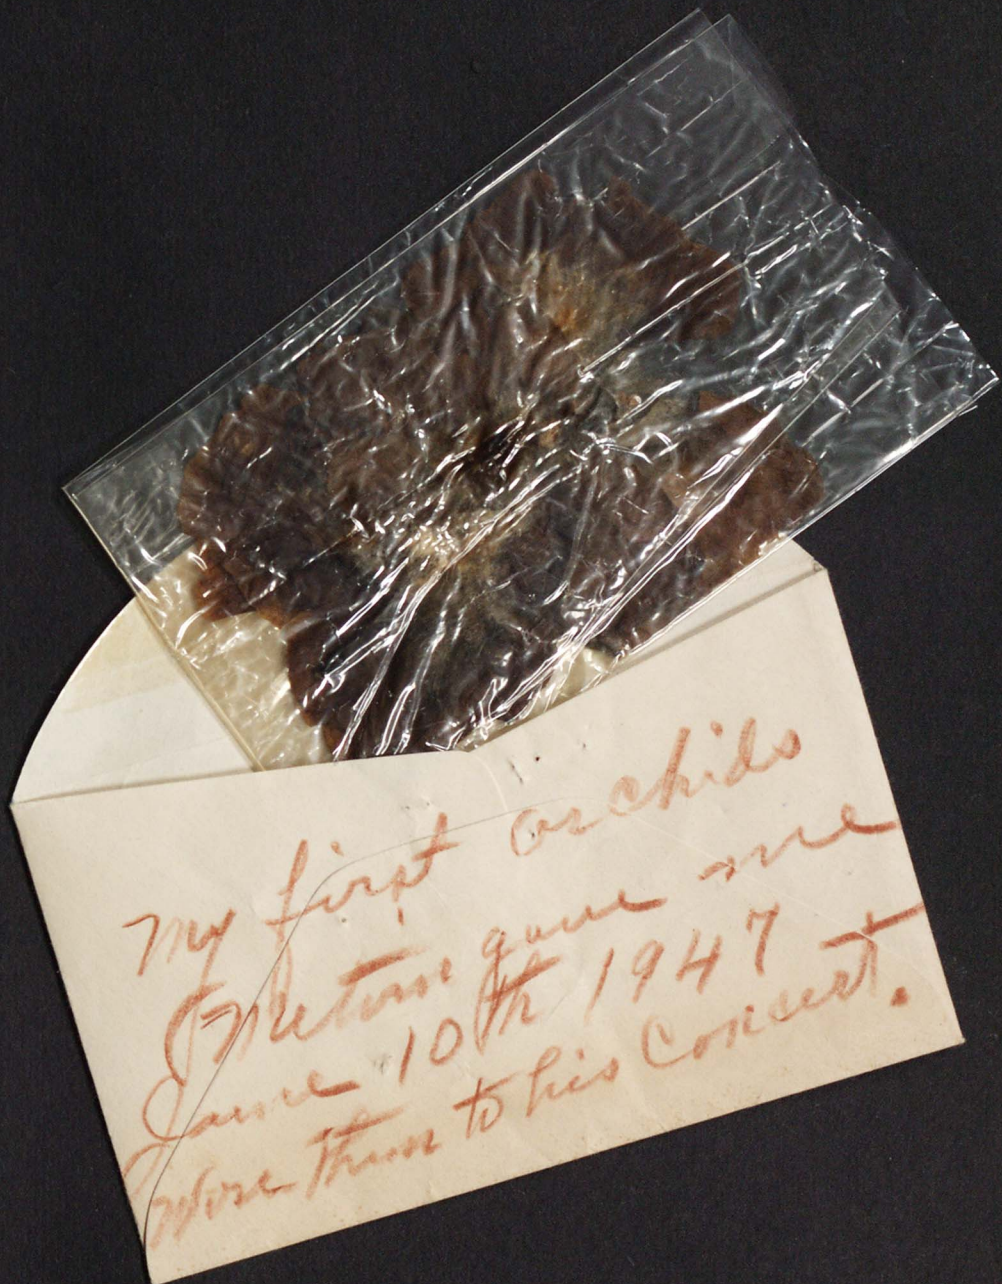 My first orchids
gave me
June 10th 1947
Wore them to his Concert.